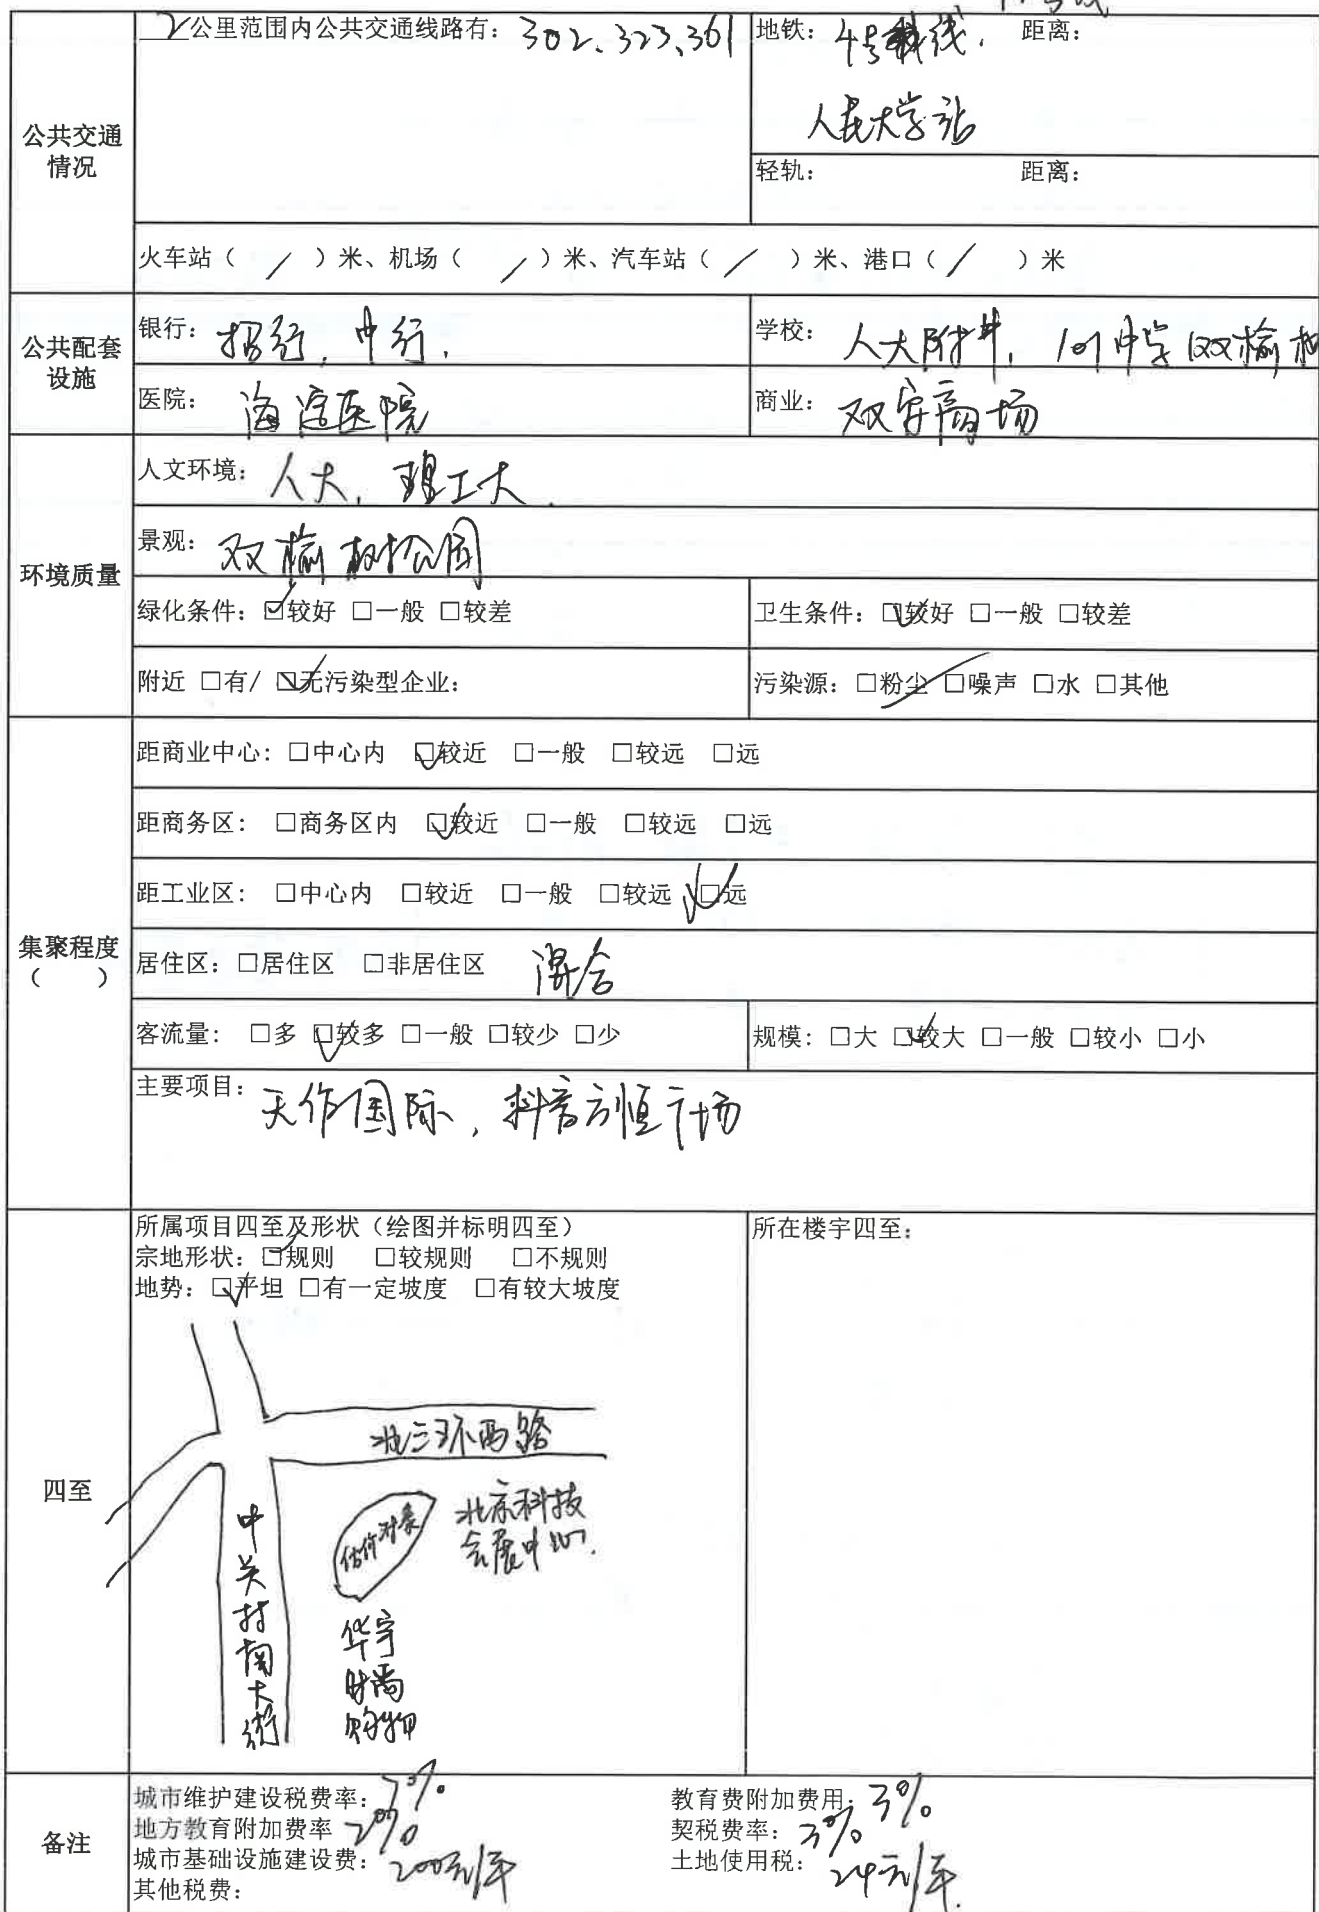 2公里范围内公共交通线路有：302、323、361
地铁：4号线，
距离：
人民大学站
公共交通
情况
轻轨：
距离：
火车站（ / ）米、机场（ / ）米、汽车站（ / ）米、港口（ / ）米
公共配套
设施
银行：招行，中行，
学校：人大附中，101中学 双榆树
医院：海淀医院
商业：双安商场
环境质量
人文环境：人大，理工大
景观：双榆树公园
绿化条件：☑较好 □一般 □较差
卫生条件：☑较好 □一般 □较差
附近 □有/ ☑无污染型企业：
污染源：□粉尘 □噪声 □水 □其他
集聚程度
（ ）
距商业中心：□中心内 ☑较近 □一般 □较远 □远
距商务区：□商务区内 ☑较近 □一般 □较远 □远
距工业区：□中心内 □较近 □一般 □较远 ☑远
居住区：□居住区 □非居住区 混合
客流量：□多 ☑较多 □一般 □较少 □少
规模：□大 ☑较大 □一般 □较小 □小
主要项目：天作国际，抖音方恒广场
四至
所属项目四至及形状（绘图并标明四至）
宗地形状：☑规则 □较规则 □不规则
地势：☑平坦 □有一定坡度 □有较大坡度
所在楼宇四至：
北三环西路
中关村南大街
估价对象
北京科技
会展中心
华宇
时尚
购物
备注
城市维护建设税费率：7%
教育费附加费用：3%
地方教育附加费率 2%
契税费率：3%
城市基础设施建设费：200元/平
土地使用税：24元/平
其他税费：